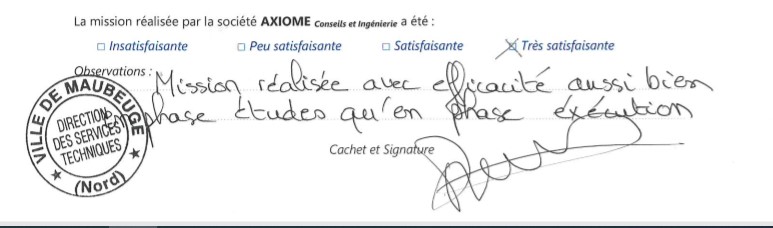 La mission réalisée par la société AXIOME Conseils et Ingénierie a été :
☐ Insatisfaisante ☐ Peu satisfaisante ☐ Satisfaisante ☒ Très satisfaisante
Observations : Mission réalisée avec efficacité aussi bien
en phase études qu'en phase éxécution
VILLE DE MAUBEUGE
DIRECTION
DES SERVICES
TECHNIQUES
(Nord)
Cachet et Signature